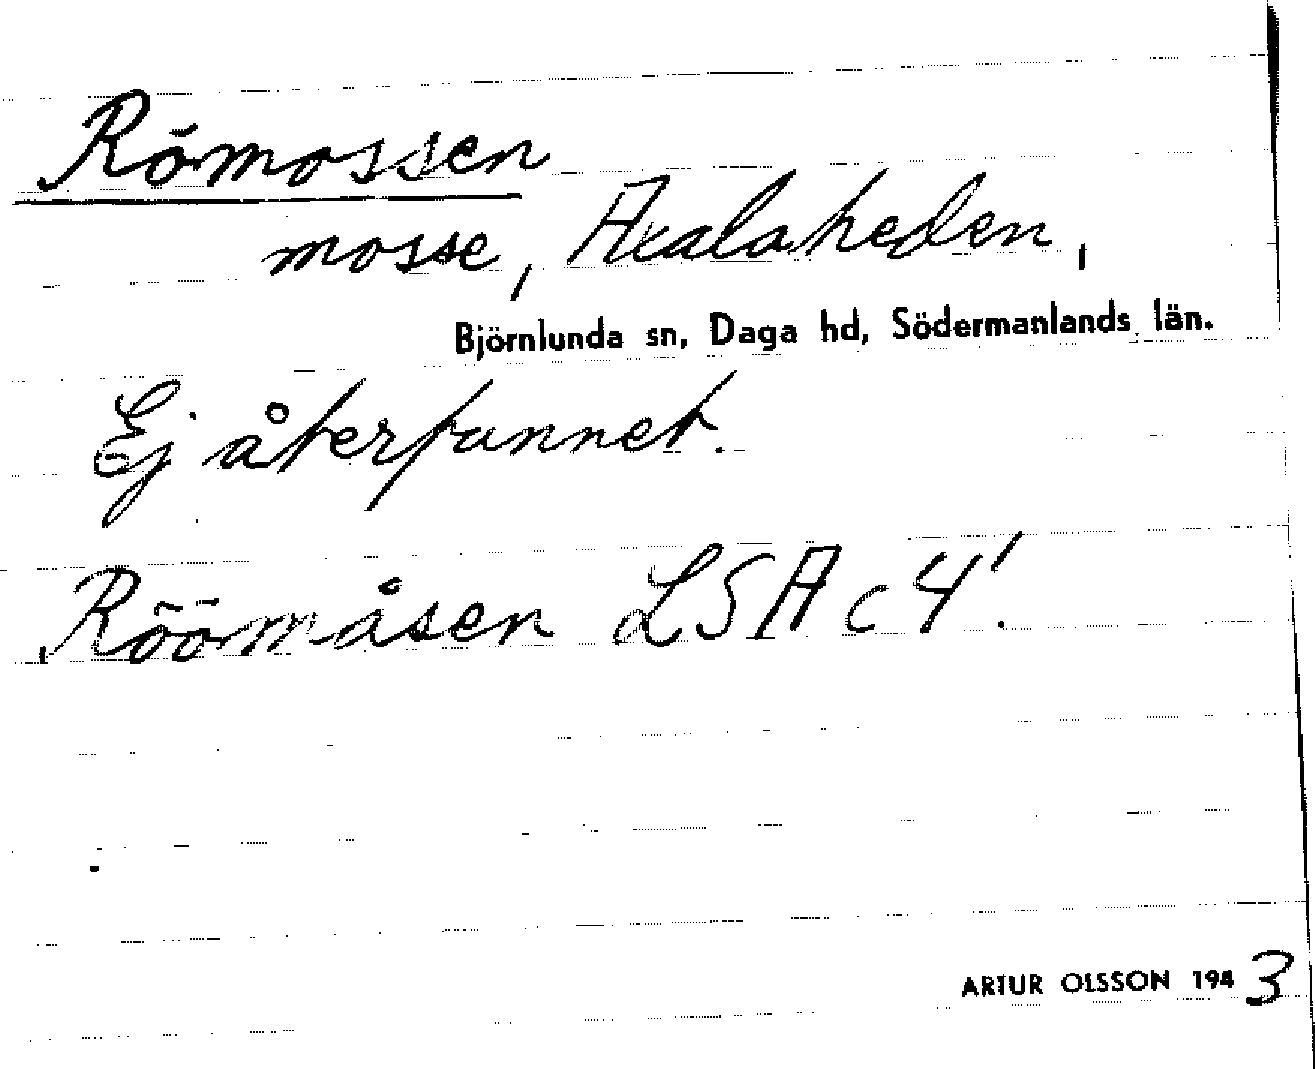 Römossen
mosse, Axalaheden,
Björnlunda sn, Daga hd, Södermanlands län.
Ej återfunnet.
Röömåsen LSA c 4!
ARTUR OLSSON 1943